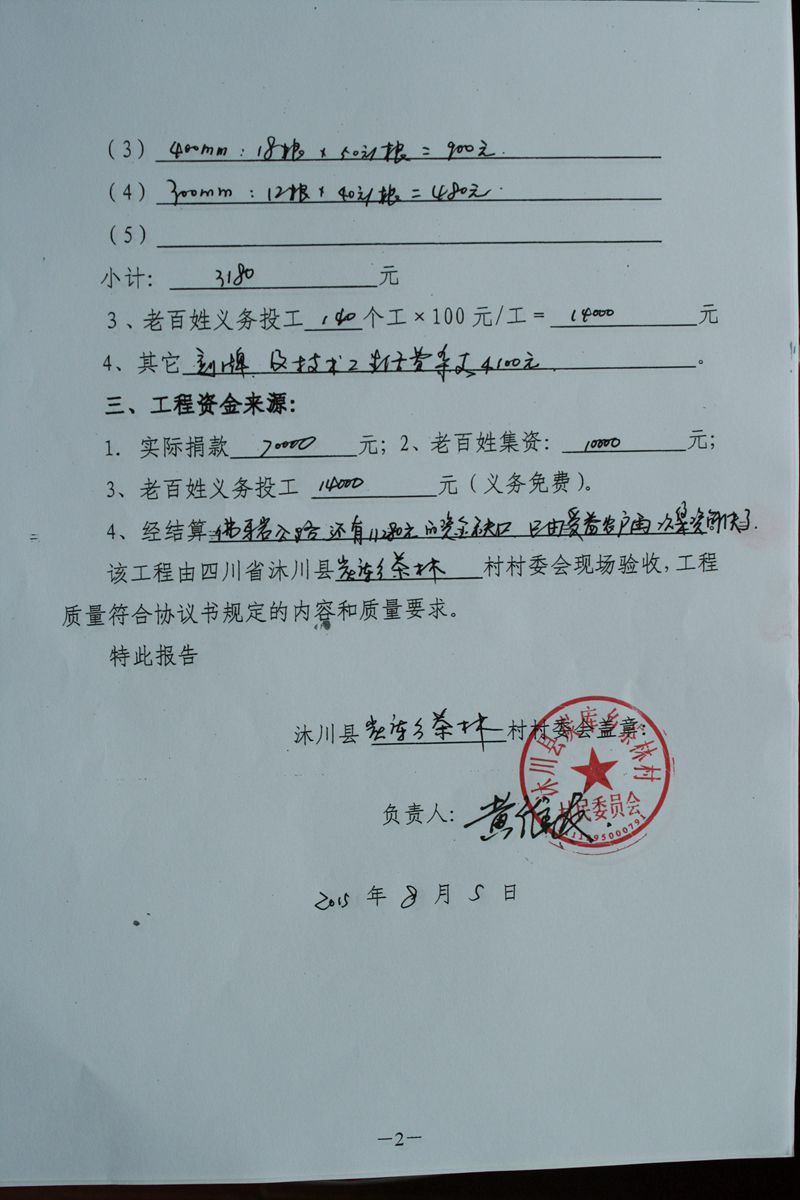 （3）400mm：18根×50元/根=900元.
（4）300mm：12根×40元/根=480元.
（5）
小计： 3180 元
3、老百姓义务投工 140 个工×100元/工= 14000 元
4、其它 及技术工 4100元 。
三、工程资金来源：
1. 实际捐款 70000 元；2、老百姓集资： 10000 元；
3、老百姓义务投工 14000 元（义务免费）。
4、经结算 公路还有11280元的资金缺口 已由受益农户再次集资解决了.
该工程由四川省沐川县 茶林 村村委会现场验收，工程
质量符合协议书规定的内容和质量要求。
特此报告
沐川县 茶林 村村委会盖章：
沐川县炭库乡茶林村
村民委员会
负责人：黄
2015 年 8 月 5 日
—2—